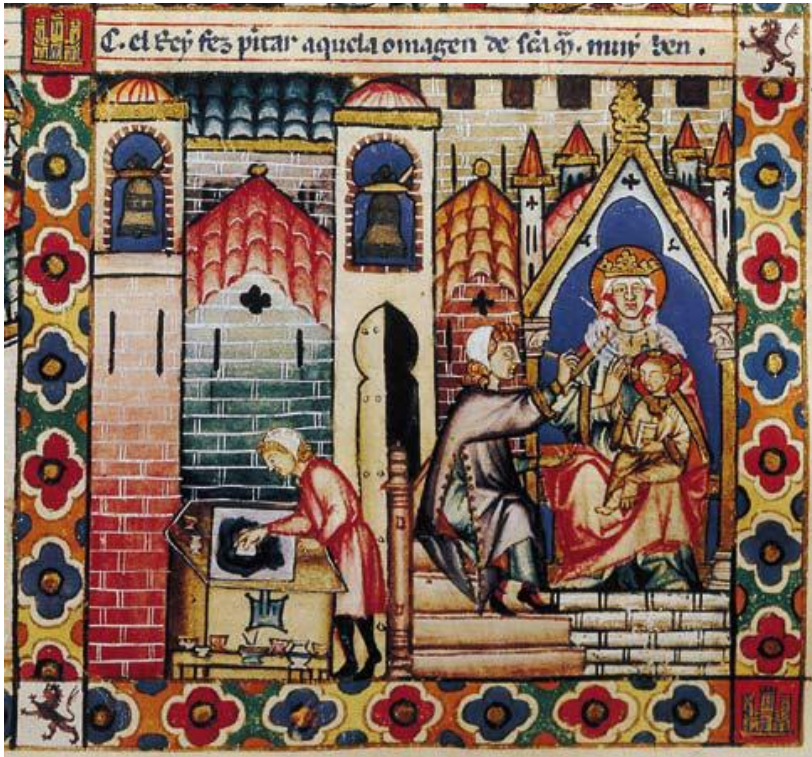 C. el Rey fez pītar aquela omagen de scā m̄. muy ben .